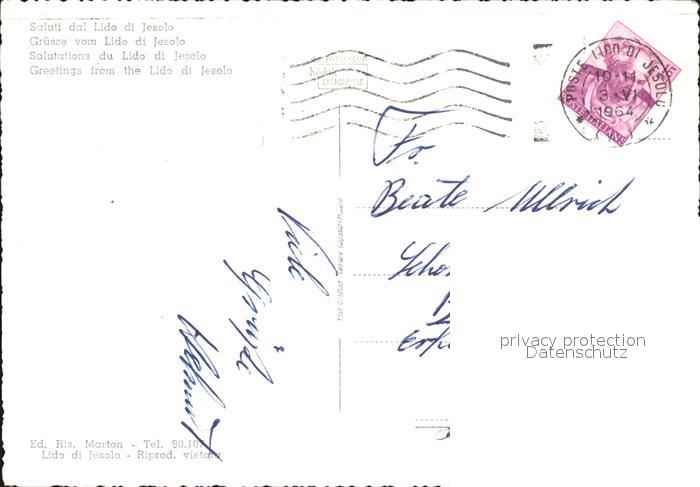 Saluti dal Lido di Jesolo
Grüsse vom Lido di Jesolo
Salutations du Lido di Jesolo
Greetings from the Lido di Jesolo
FOTOCOLOR
Kodak
EKTACHROME
POSTE LIDO DI JESOLO
10-11
3·VI
1964
ITALIANE
Fr.
Beate Ullrich
Viele
Grüße
Helmut
privacy protection
Datenschutz
Ed. Ris. Marton - Tel. 90.10
Lido di Jesolo - Riprod. vietata